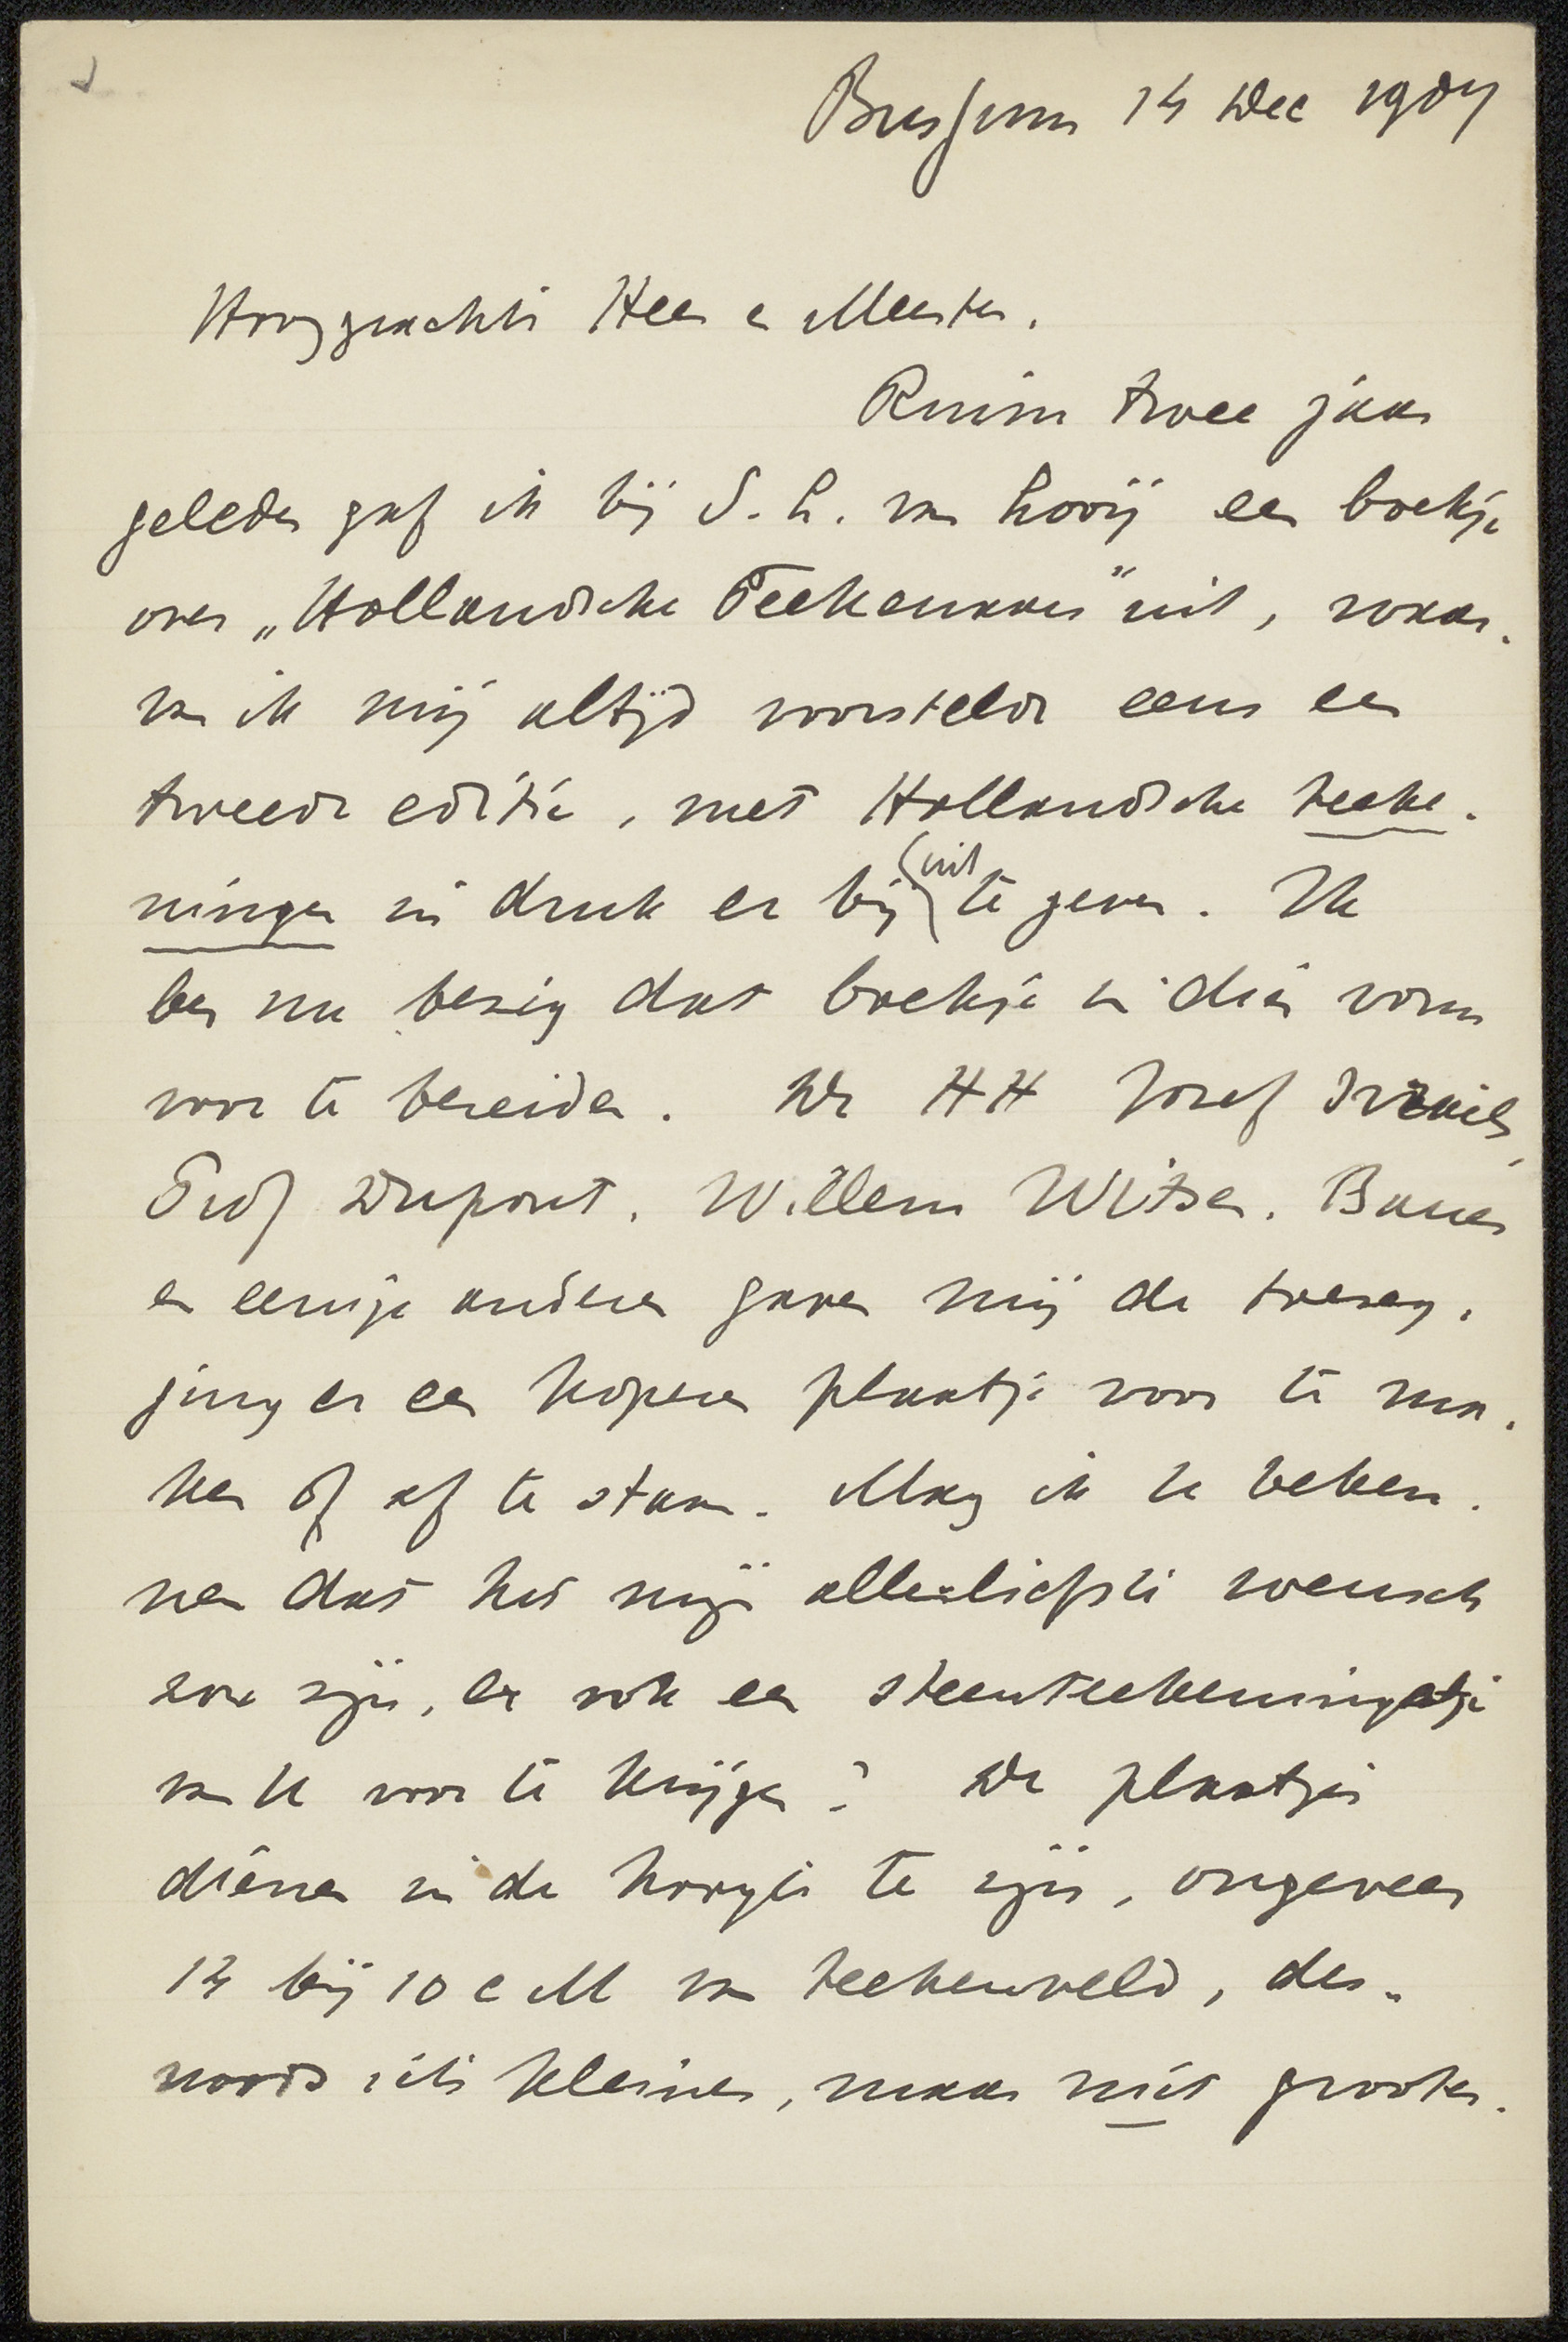 Bussum 14 Dec 1907
Hooggeachte Heer en Meester.
Ruim twee jaar
geleden gaf ik bij S. L. van Looij een boekje
over „Hollandsche Teekenaars” uit, waar-
van ik mij altijd voorstelde eens een
tweede editie, met Hollandsche teeke-
ningen in druk er bij uit te geven. Ik
ben nu bezig dat boekje in dien vorm
voor te bereiden. De HH Jozef Israëls,
Prof Dupont, Willem Witsen, Bauer
en eenige anderen gaven mij de toezeg-
ging er een koperen plaatje voor te ma-
ken of af te staan. Mag ik U beken-
nen dat het mijn allerliefste wensch
zou zijn, er ook een steenteekeningetje
van U voor te krijgen? De plaatjes
dienen in de hoogte te zijn, ongeveer
14 bij 10 c M van teekenveld, des-
noods iets kleiner, maar niet grooter.